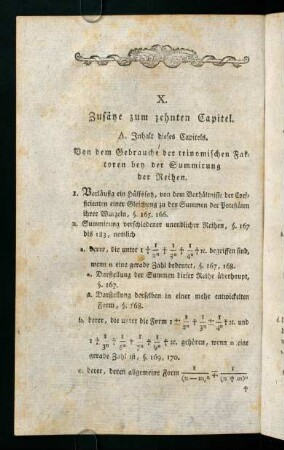 X.
Zusätze zum zehnten Capitel.
A. Inhalt dieses Capitels.
Von dem Gebrauche der trinomischen Fak-
toren bey der Summirung
der Reihen.
1. Vorläufig ein Hülfssatz, von dem Verhältnisse der Coef-
ficienten einer Gleichung zu den Summen der Potestäten
ihrer Wurzeln, §. 165. 166.
2. Summirung verschiedener unendlicher Reihen, §. 167
bis 183, nemlich
a. derer, die unter 1 + 1/2ⁿ + 1/3ⁿ + 1/4ⁿ + ꝛc. begriffen sind,
wenn n eine gerade Zahl bedeutet, §. 167, 168.
α. Darstellung der Summen dieser Reihe überhaupt,
§. 167.
β. Darstellung derselben in einer mehr entwickelten
Form, §. 168.
b. derer, die unter die Form 1 + 1/3ⁿ + 1/5ⁿ + ꝛc. und
1 + 1/5ⁿ + 1/7ⁿ + ꝛc. gehören, wenn n eine
gerade Zahl ist, §. 169, 170.
c. derer, deren allgemeine Form 1/(n−m)ⁿ + 1/(n+m)ⁿ
+